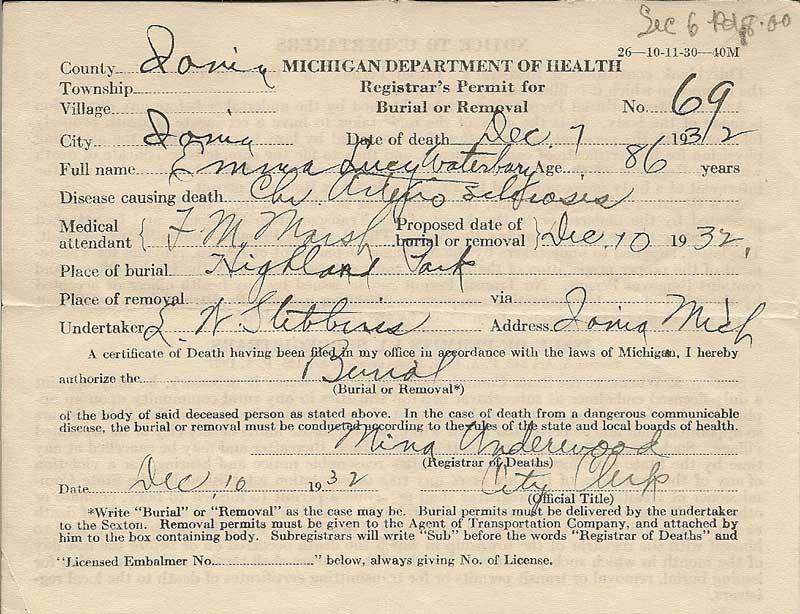 Sec 6 Pd 8.00
26—10-11-30—40M
County Ionia MICHIGAN DEPARTMENT OF HEALTH
Township Registrar's Permit for
Village Burial or Removal No. 69
City Ionia Date of death Dec. 7 1932
Full name Emma Lucy Waterbury Age 86 years
Disease causing death Chr. Arterio Sclerosis
Medical attendant { F. M. Marsh Proposed date of burial or removal } Dec. 10 1932,
Place of burial Highland Park
Place of removal via
Undertaker E. W. Stebbins Address Ionia Mich
A certificate of Death having been filed in my office in accordance with the laws of Michigan, I hereby
authorize the Burial
(Burial or Removal*)
of the body of said deceased person as stated above. In the case of death from a dangerous communicable
disease, the burial or removal must be conducted according to the rules of the state and local boards of health.
Mina Underwood
(Registrar of Deaths)
Date Dec, 10 1932 City Clerk
(Official Title)
*Write "Burial" or "Removal" as the case may be. Burial permits must be delivered by the undertaker
to the Sexton. Removal permits must be given to the Agent of Transportation Company, and attached by
him to the box containing body. Subregistrars will write "Sub" before the words "Registrar of Deaths" and
"Licensed Embalmer No." below, always giving No. of License.